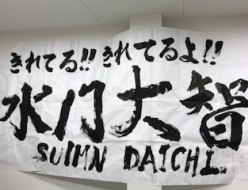 きれてる!! きれてるよ!!
水门大智
SUIMN DAICHI